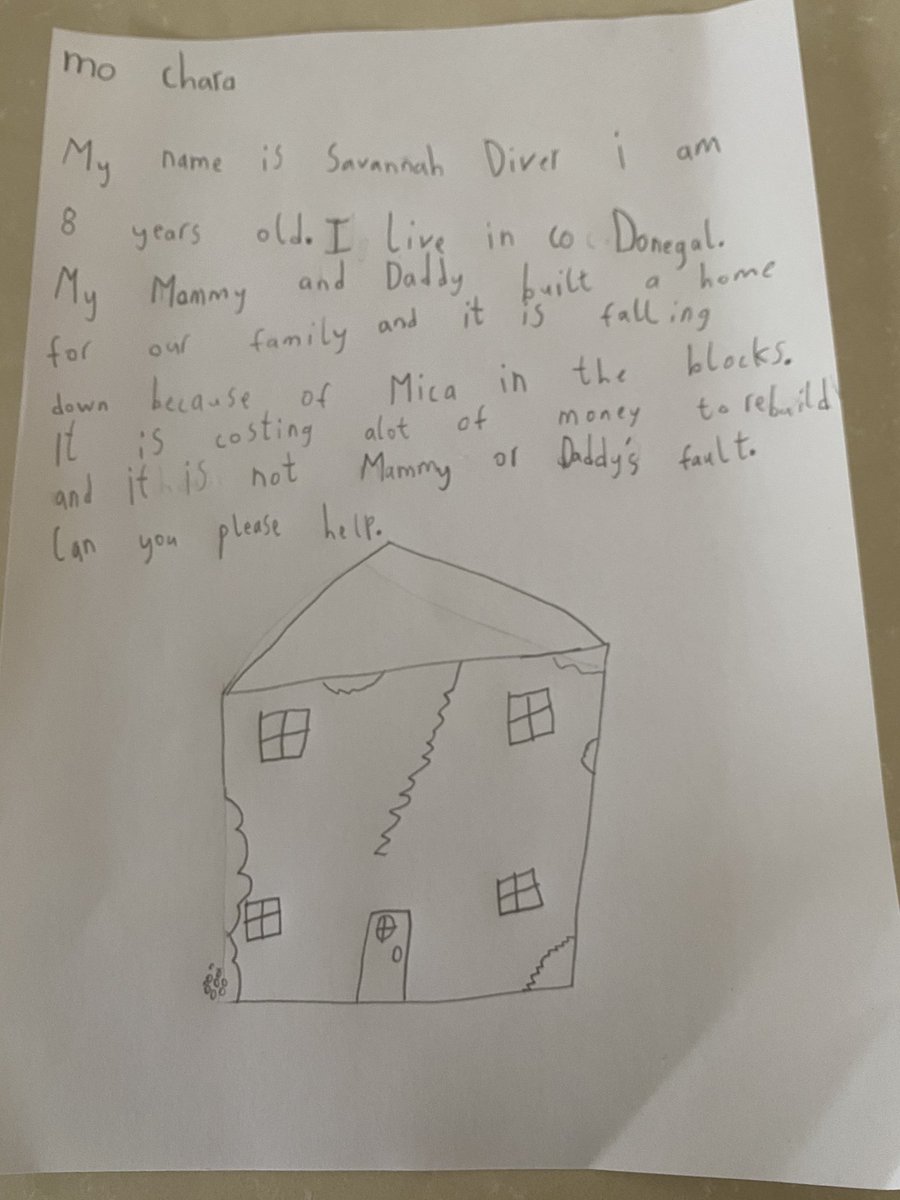 mo chara
My name is Savannah Diver i am
8 years old. I live in co Donegal.
My Mammy and Daddy built a home
for our family and it is falling
down because of Mica in the blocks.
It is costing alot of money to rebuild
and it is not Mammy or Daddy's fault.
Can you please help.